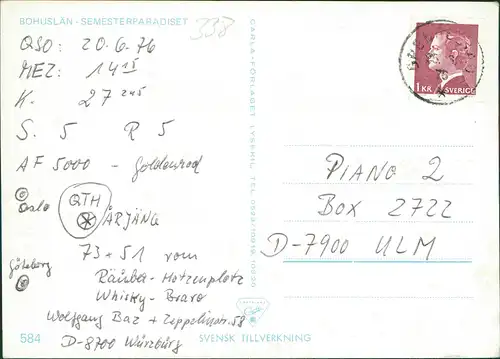 BOHUSLÄN - SEMESTERPARADISET
338
QSO: 20.6.76
MEZ: 14 15
K. 27 245
S. 5 R 5
AF 5000 - Goldenrod
Oslo
QTH
ÅRJÄNG
Göteborg
73 + 51 vom
Räuber-Hotzenplotz
Whisky-Bravo
Wolfgang Baz + Zeppelinstr. 58
D-8700 Würzburg
584
SVENSK TILLVERKNING
CARLA-FÖRLAGET LYSEKIL TEL. 0523/
1 KR SVERIGE
PIANO 2
BOX 2722
D-7900 ULM